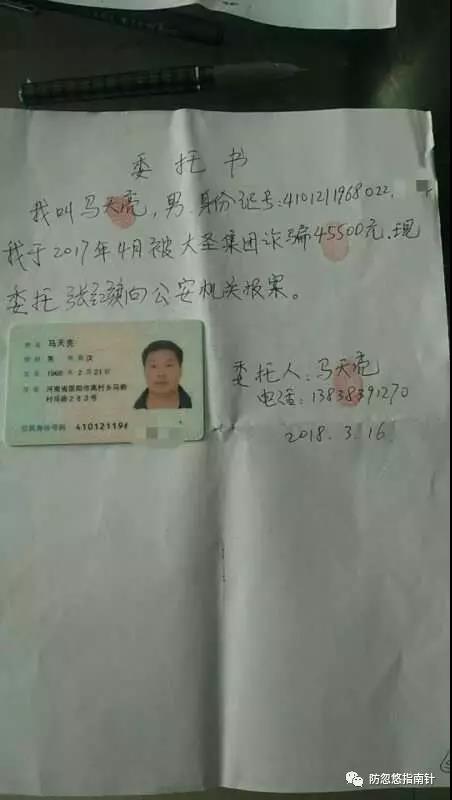 委托书
我叫马天亮,男.身份证号:4101211968022
我于2017年4月被大圣集团诈骗45500元.现
委托张红颜向公安机关报案。
姓名 马天亮
性别 男 民族 汉
出生 1968 年 2 月 21 日
住址 河南省荥阳市高村乡马寨
村马寨283号
公民身份号码 41012119
委托人:马天亮
电话:13838391270
2018.3.16
防忽悠指南针